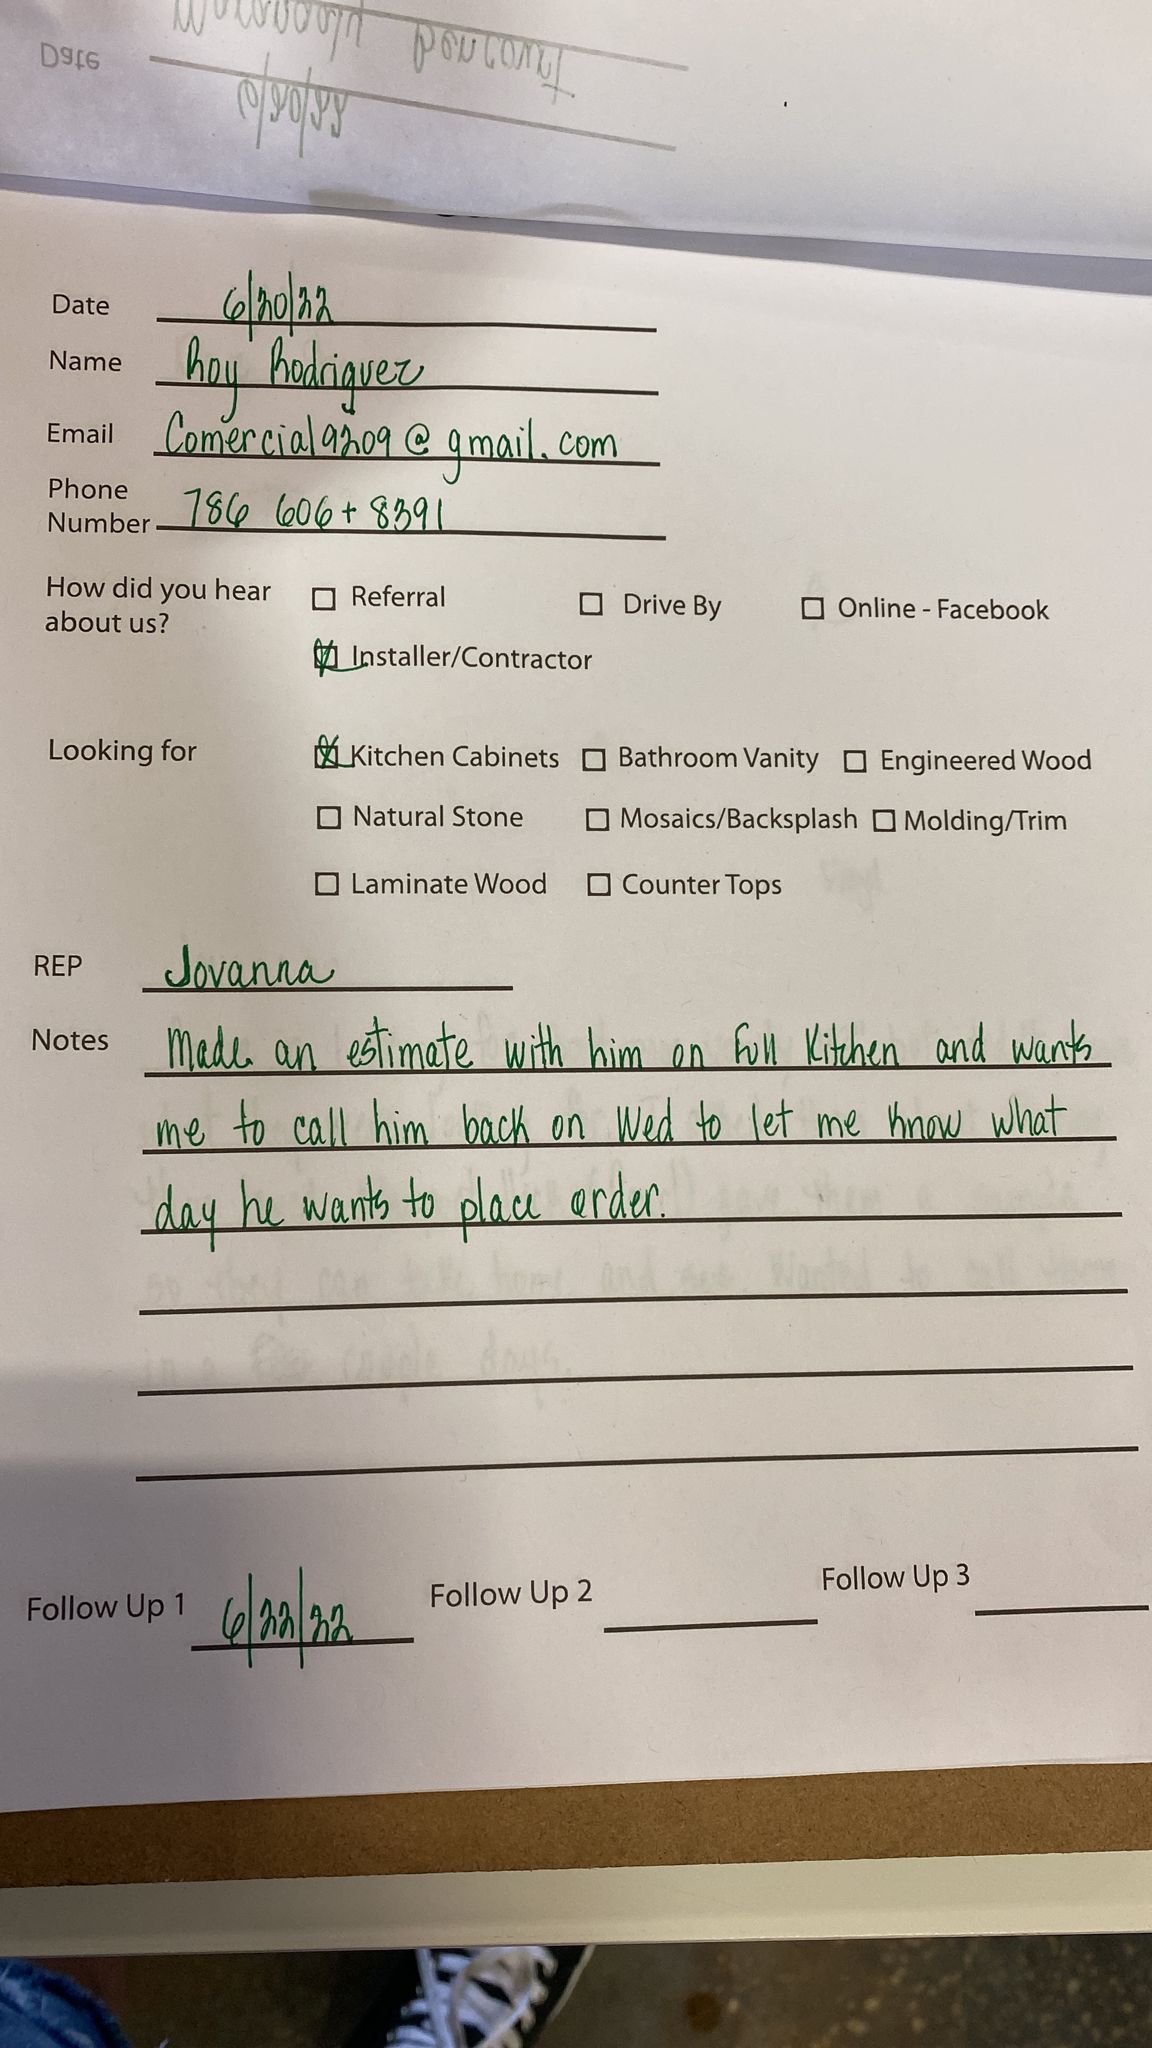 Date
6/20/22
Date 6/20/22
Name Roy Rodriguez
Email Comercial9209@gmail.com
Phone
Number 786 606+8391
How did you hear
about us?
Referral Drive By Online - Facebook
Installer/Contractor
Looking for Kitchen Cabinets Bathroom Vanity Engineered Wood
Natural Stone Mosaics/Backsplash Molding/Trim
Laminate Wood Counter Tops
REP Jovanna
Notes Made an estimate with him on full kitchen and wants
me to call him back on Wed to let me know what
day he wants to place order.
Follow Up 1 6/22/22 Follow Up 2 Follow Up 3